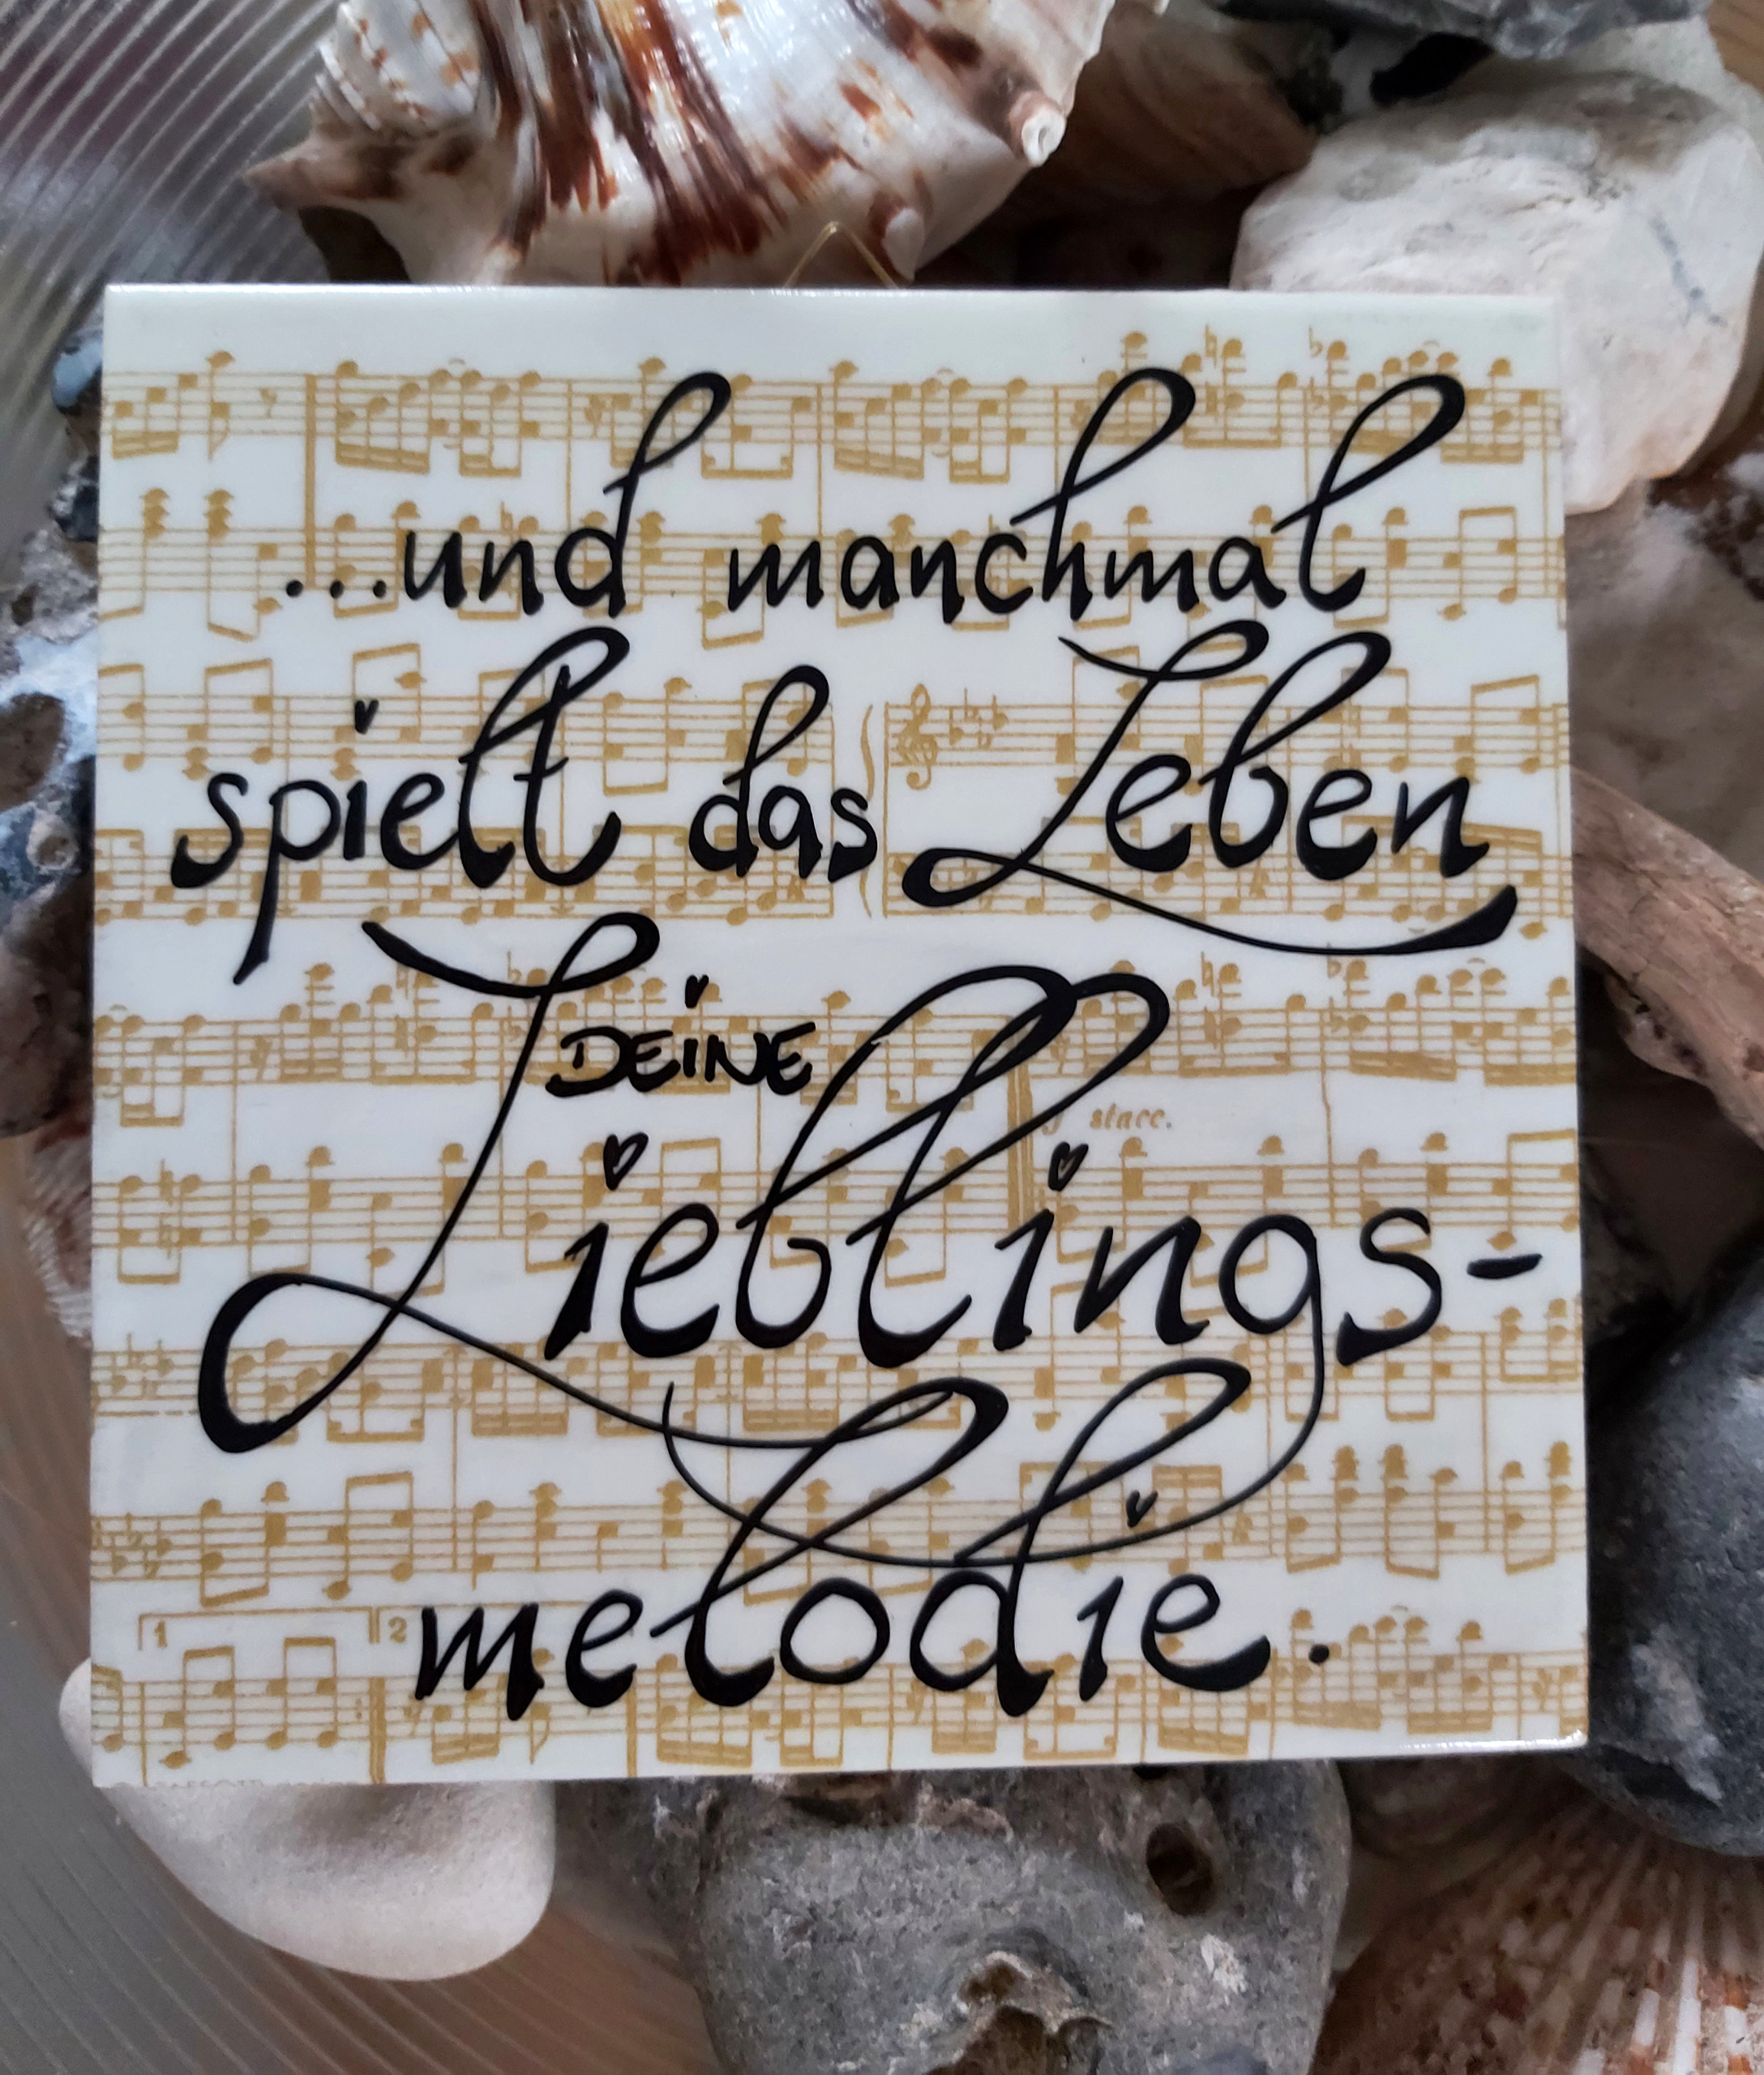 ...und manchmal
spielt das Leben
DEINE
Lieblings-
melodie.
stacc.
1
2